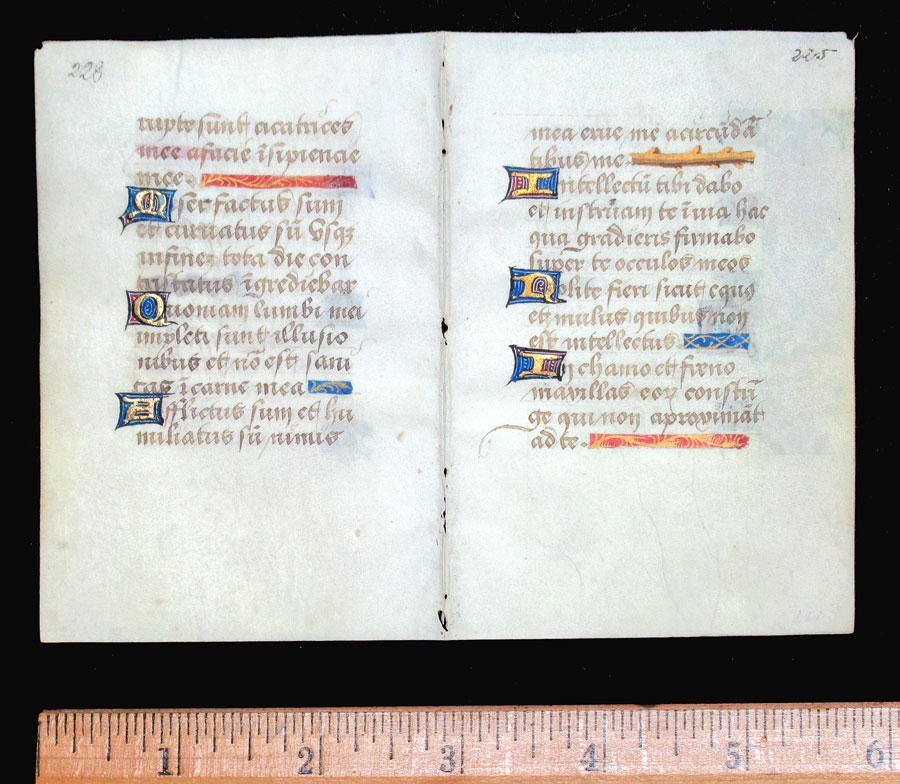 228
rupte sunt cicatrices
mee afacie īsipiencie
mee
Miser̄ factus sum
et curuatus sū vsqȝ
infinez tota die con
tristatus īgrediebar
Quoniam lumbi mei
impleti sunt illusio
nibus et nō est sani
tas ī carne mea
Afflictus sum et hu
miliatus sū nimis
225
mea erue me acircūdā
tibus me
Intellectū tibi dabo
et instruam te ī uia hac
qua gradieris firmabo
super te occulos meos
Nolite fieri sicut equs
et mulus quibus non
est intellectus
In chamo et freno
maxillas eor constrī
ge qui non aproximāt
ad te
1 2 3 4 5 6